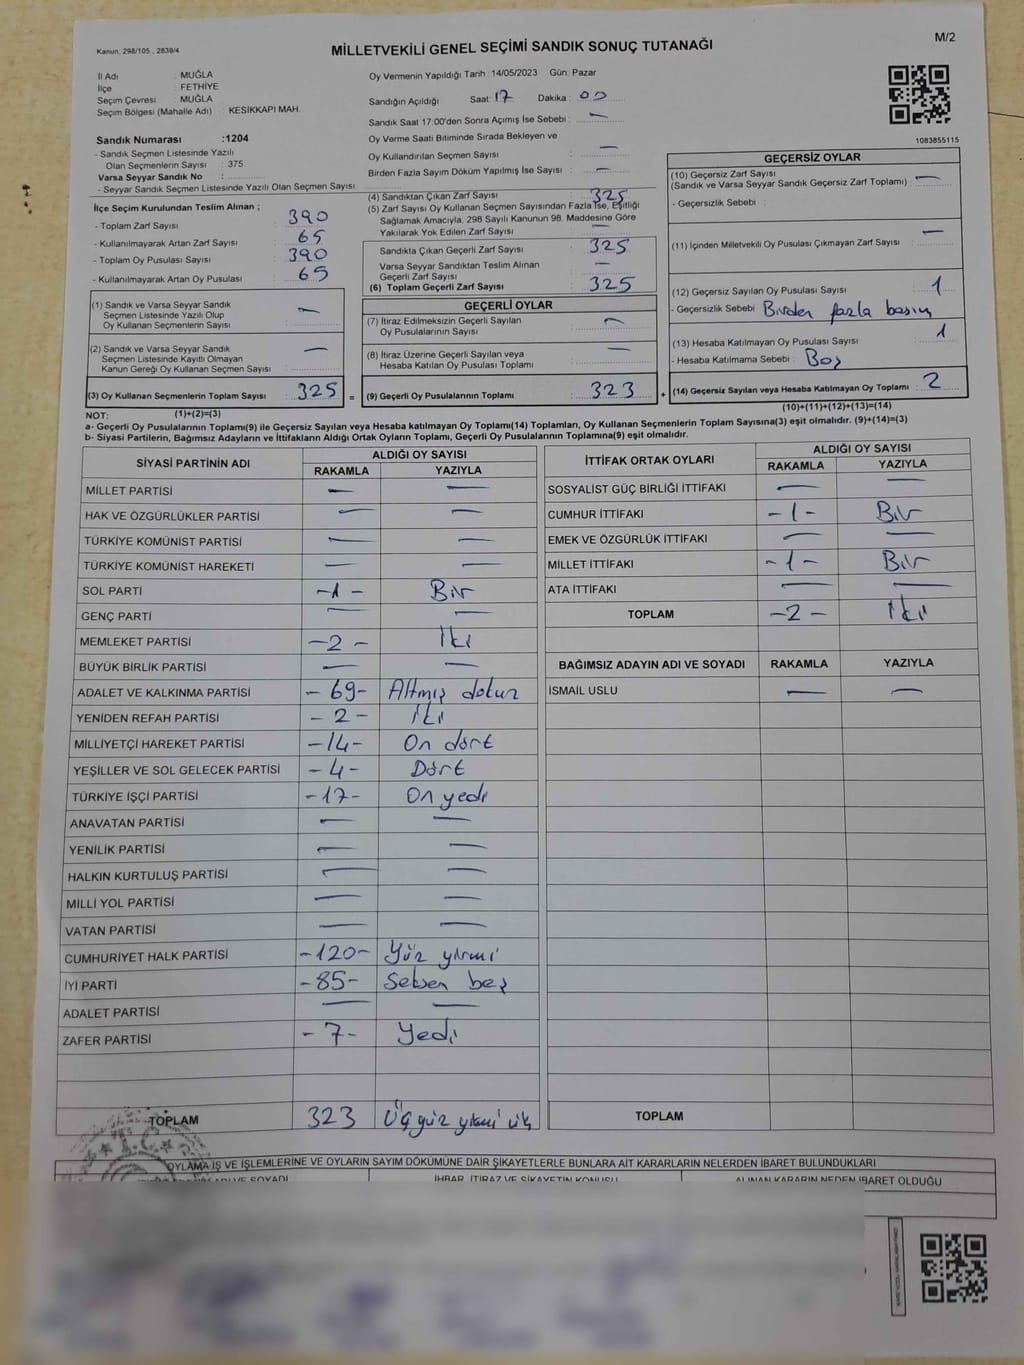 Kanun, 298/105, 2839/4
MİLLETVEKİLİ GENEL SEÇİMİ SANDIK SONUÇ TUTANAĞI
M/2
İl Adı : MUĞLA
İlçe : FETHİYE
Seçim Çevresi : MUĞLA
Seçim Bölgesi (Mahalle Adı) : KESİKKAPI MAH.
Sandık Numarası :1204
- Sandık Seçmen Listesinde Yazılı
Olan Seçmenlerin Sayısı : 375
Varsa Seyyar Sandık No :
- Seyyar Sandık Seçmen Listesinde Yazılı Olan Seçmen Sayısı
Oy Vermenin Yapıldığı Tarih :14/05/2023 Gün: Pazar
Sandığın Açıldığı Saat: 17 Dakika : 00
Sandık Saat 17:00'den Sonra Açımış İse Sebebi : —
Oy Verme Saati Bitiminde Sırada Bekleyen ve
Oy Kullandırılan Seçmen Sayısı : —
Birden Fazla Sayım Döküm Yapılmış İse Sayısı : —
1083855115
İlçe Seçim Kurulundan Teslim Alınan ;
- Toplam Zarf Sayısı : 390
- Kullanılmayarak Artan Zarf Sayısı : 65
- Toplam Oy Pusulası Sayısı : 390
- Kullanılmayarak Artan Oy Pusulası : 65
(1) Sandık ve Varsa Seyyar Sandık
Seçmen Listesinde Yazılı Olup
Oy Kullanan Seçmenlerin Sayısı : —
(2) Sandık ve Varsa Seyyar Sandık
Seçmen Listesinde Kayıtlı Olmayan
Kanun Gereği Oy Kullanan Seçmen Sayısı : —
(3) Oy Kullanan Seçmenlerin Toplam Sayısı : 325 =
(4) Sandıktan Çıkan Zarf Sayısı : 325
(5) Zarf Sayısı Oy Kullanan Seçmen Sayısından Fazla İse, Eşitliği
Sağlamak Amacıyla, 298 Sayılı Kanunun 98. Maddesine Göre
Yakılarak Yok Edilen Zarf Sayısı : —
Sandıkta Çıkan Geçerli Zarf Sayısı : 325
Varsa Seyyar Sandıktan Teslim Alınan
Geçerli Zarf Sayısı : —
(6) Toplam Geçerli Zarf Sayısı : 325
GEÇERLİ OYLAR
(7) İtiraz Edilmeksizin Geçerli Sayılan
Oy Pusulalarının Sayısı : —
(8) İtiraz Üzerine Geçerli Sayılan veya
Hesaba Katılan Oy Pusulası Toplamı : —
(9) Geçerli Oy Pusulalarının Toplamı : 323 +
GEÇERSİZ OYLAR
(10) Geçersiz Zarf Sayısı
(Sandık ve Varsa Seyyar Sandık Geçersiz Zarf Toplamı) : —
- Geçersizlik Sebebi :
(11) İçinden Milletvekili Oy Pusulası Çıkmayan Zarf Sayısı : —
(12) Geçersiz Sayılan Oy Pusulası Sayısı : 1
- Geçersizlik Sebebi : Birden fazla basım
(13) Hesaba Katılmayan Oy Pusulası Sayısı : 1
- Hesaba Katılmama Sebebi : Boş
(14) Geçersiz Sayılan veya Hesaba Katılmayan Oy Toplamı : 2
NOT: (1)+(2)=(3)
(10)+(11)+(12)+(13)=(14)
a- Geçerli Oy Pusulalarının Toplamı(9) ile Geçersiz Sayılan veya Hesaba katılmayan Oy Toplamı(14) Toplamları, Oy Kullanan Seçmenlerin Toplam Sayısına(3) eşit olmalıdır. (9)+(14)=(3)
b- Siyasi Partilerin, Bağımsız Adayların ve İttifakların Aldığı Ortak Oyların Toplamı, Geçerli Oy Pusulalarının Toplamına(9) eşit olmalıdır.
SİYASİ PARTİNİN ADI ALDIĞI OY SAYISI
RAKAMLA YAZIYLA
MİLLET PARTİSİ — —
HAK VE ÖZGÜRLÜKLER PARTİSİ — —
TÜRKİYE KOMÜNİST PARTİSİ — —
TÜRKİYE KOMÜNİST HAREKETİ — —
SOL PARTİ -1- Bir
GENÇ PARTİ — —
MEMLEKET PARTİSİ -2- İki
BÜYÜK BİRLİK PARTİSİ — —
ADALET VE KALKINMA PARTİSİ -69- Altmış dokuz
YENİDEN REFAH PARTİSİ -2- İki
MİLLİYETÇİ HAREKET PARTİSİ -14- On dört
YEŞİLLER VE SOL GELECEK PARTİSİ -4- Dört
TÜRKİYE İŞÇİ PARTİSİ -17- On yedi
ANAVATAN PARTİSİ — —
YENİLİK PARTİSİ — —
HALKIN KURTULUŞ PARTİSİ — —
MİLLİ YOL PARTİSİ — —
VATAN PARTİSİ — —
CUMHURİYET HALK PARTİSİ -120- Yüz yirmi
İYİ PARTİ -85- Seksen beş
ADALET PARTİSİ — —
ZAFER PARTİSİ -7- Yedi
TOPLAM 323 Üç yüz yirmi üç
İTTİFAK ORTAK OYLARI ALDIĞI OY SAYISI
RAKAMLA YAZIYLA
SOSYALİST GÜÇ BİRLİĞİ İTTİFAKI — —
CUMHUR İTTİFAKI -1- Bir
EMEK VE ÖZGÜRLÜK İTTİFAKI — —
MİLLET İTTİFAKI -1- Bir
ATA İTTİFAKI — —
TOPLAM -2- İki
BAĞIMSIZ ADAYIN ADI VE SOYADI RAKAMLA YAZIYLA
İSMAİL USLU — —
TOPLAM
T.C.
OYLAMA İŞ VE İŞLEMLERİNE VE OYLARIN SAYIM DÖKÜMÜNE DAİR ŞİKAYETLERLE BUNLARA AİT KARARLARIN NELERDEN İBARET BULUNDUKLARI
VE SOYADI İHBAR, İTİRAZ VE ŞİKAYETİN KONUSU ALINAN KARARIN NEDEN İBARET OLDUĞU